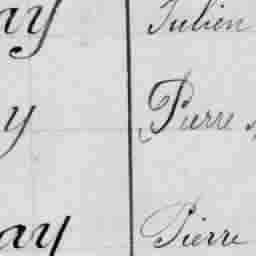 ay Julien
y Pierre
ay Pierre